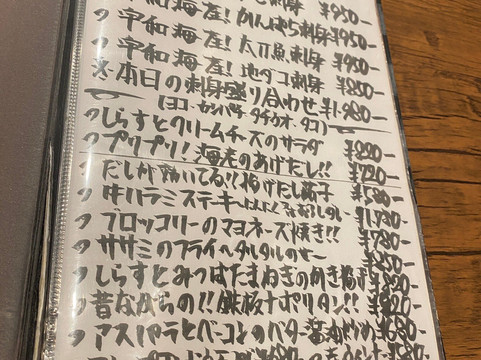 平和海産! 刺身 ¥950-
平和海産! かんぱち刺身 ¥950-
平和海産! 太刀魚刺身 ¥950-
平和海産! 地ダコ刺身 ¥850-
※本日の刺身盛り合わせ ¥1,980-
(ヨコ・カンパチ・タチウオ、タコ)
しらすとクリームチーズのサラダ ¥890-
プリプリ!海老のあげだし!! ¥720-
だしが効いてる!!揚げだし茄子 ¥580-
牛ハラミステーキ ¥1,730-
ブロッコリーのマヨネーズ焼き!! ¥780-
ササミのフライ~タルタルのせ~ ¥850-
しらすとみつばたまねぎのかき揚げ
昔ながらの!!鉄板ナポリタン!! ¥920-
アスパラとベーコンのバター醤油炒め ¥680-